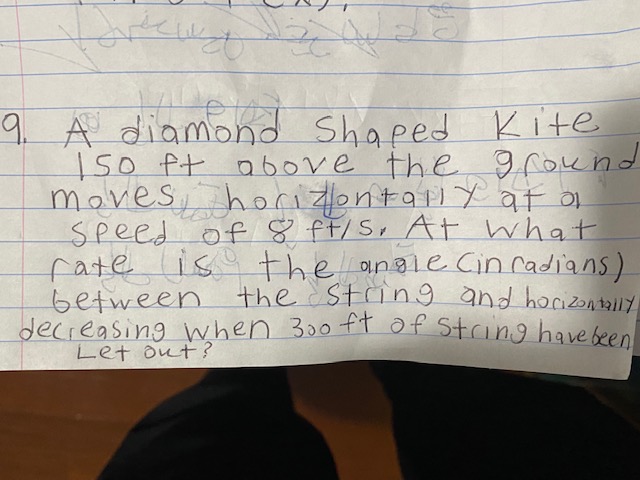 9. A diamond Shaped Kite
150 ft above the ground
moves horizontally at a
speed of 8 ft/s. At what
rate is the angle (in radians)
between the string and horizontally
decreasing when 300 ft of string have been
Let out?